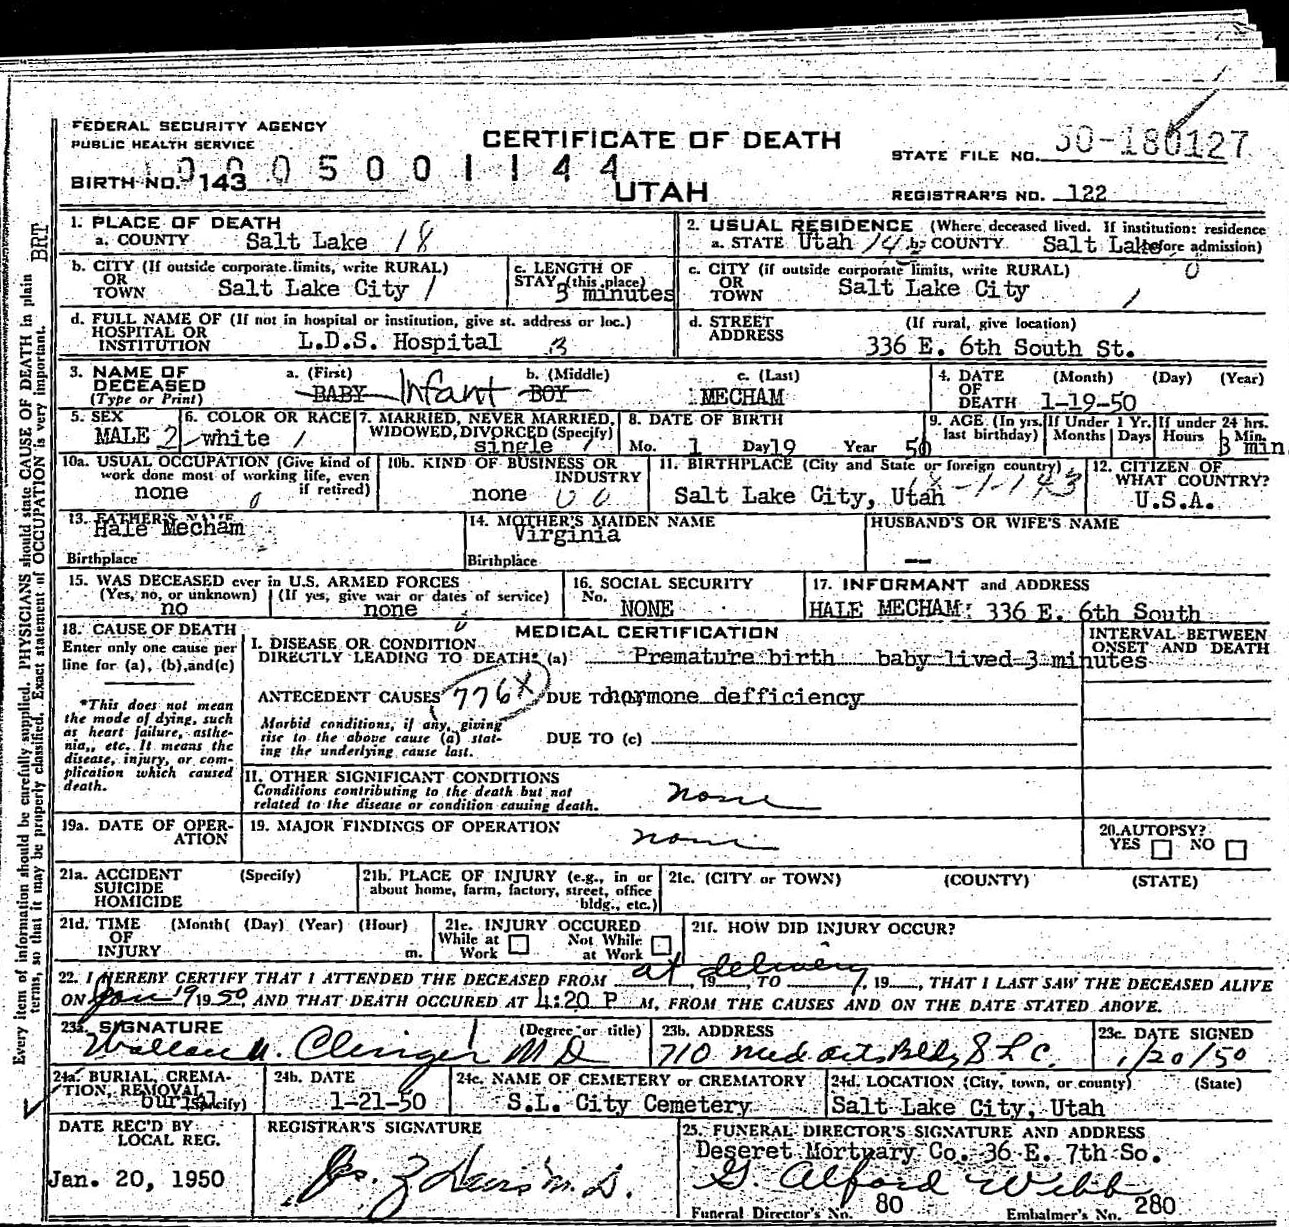 FEDERAL SECURITY AGENCY
PUBLIC HEALTH SERVICE
CERTIFICATE OF DEATH
STATE FILE NO. 50-180127
0005001144
BIRTH NO. 143
UTAH
REGISTRAR'S NO. 122
1. PLACE OF DEATH
a. COUNTY Salt Lake 18
2. USUAL RESIDENCE (Where deceased lived. If institution: residence before admission)
a. STATE Utah 14 b. COUNTY Salt Lake 0
b. CITY (If outside corporate limits, write RURAL)
OR
TOWN Salt Lake City 1
c. LENGTH OF
STAY (this place)
3 minutes
c. CITY (if outside corporate limits, write RURAL)
OR
TOWN Salt Lake City 1
d. FULL NAME OF (If not in hospital or institution, give st. address or loc.)
HOSPITAL OR
INSTITUTION L.D.S. Hospital 3
d. STREET (If rural, give location)
ADDRESS 336 E. 6th South St.
3. NAME OF DECEASED
(Type or Print)
a. (First) BABY Infant
b. (Middle) BOY
c. (Last) MECHAM
4. DATE OF DEATH (Month) (Day) (Year)
1-19-50
5. SEX
MALE 2
6. COLOR OR RACE
white 1
7. MARRIED, NEVER MARRIED,
WIDOWED, DIVORCED (Specify)
single 1
8. DATE OF BIRTH
Mo. 1 Day 19 Year 50
9. AGE (In yrs. last birthday)
If Under 1 Yr. Months Days
If under 24 hrs. Hours Min.
3 min
10a. USUAL OCCUPATION (Give kind of
work done most of working life, even
if retired)
none 0
10b. KIND OF BUSINESS OR
INDUSTRY
none 00
11. BIRTHPLACE (City and State or foreign country)
Salt Lake City, Utah 18-1-143
12. CITIZEN OF
WHAT COUNTRY?
U.S.A.
13. FATHER'S NAME
Hale Mecham
Birthplace
14. MOTHER'S MAIDEN NAME
Virginia
Birthplace
HUSBAND'S OR WIFE'S NAME
—
15. WAS DECEASED ever in U.S. ARMED FORCES
(Yes, no, or unknown) (If yes, give war or dates of service)
no none
16. SOCIAL SECURITY
No. NONE
17. INFORMANT and ADDRESS
HALE MECHAM: 336 E. 6th South
18. CAUSE OF DEATH
Enter only one cause per
line for (a), (b), and (c)
*This does not mean
the mode of dying, such
as heart failure, asthe-
nia,, etc. It means the
disease, injury, or com-
plication which caused
death.
MEDICAL CERTIFICATION
I. DISEASE OR CONDITION
DIRECTLY LEADING TO DEATH* (a) Premature birth baby lived 3 minutes
INTERVAL BETWEEN
ONSET AND DEATH
ANTECEDENT CAUSES 776X DUE TO hormone defficiency
Morbid conditions, if any, giving
rise to the above cause (a) stat-
ing the underlying cause last.
DUE TO (c)
II. OTHER SIGNIFICANT CONDITIONS
Conditions contributing to the death but not
related to the disease or condition causing death.
none
19a. DATE OF OPER-
ATION
19. MAJOR FINDINGS OF OPERATION
none
20. AUTOPSY?
YES NO
21a. ACCIDENT (Specify)
SUICIDE
HOMICIDE
21b. PLACE OF INJURY (e.g., in or
about home, farm, factory, street, office
bldg., etc.)
21c. (CITY or TOWN) (COUNTY) (STATE)
21d. TIME (Month( (Day) (Year) (Hour)
OF
INJURY m.
21e. INJURY OCCURED
While at Work Not While at Work
21f. HOW DID INJURY OCCUR?
22. I HEREBY CERTIFY THAT I ATTENDED THE DECEASED FROM at delivery, 19, TO , 19, THAT I LAST SAW THE DECEASED ALIVE
ON Jan 19 1950, AND THAT DEATH OCCURED AT 4:20 P M, FROM THE CAUSES AND ON THE DATE STATED ABOVE.
23a. SIGNATURE (Degree or title)
M D
23b. ADDRESS
710 Med Arts Bldg S L C.
23c. DATE SIGNED
1/20/50
24a. BURIAL, CREMA-
TION, REMOVAL
(Specify)
burial
24b. DATE
1-21-50
24c. NAME OF CEMETERY or CREMATORY
S.L. City Cemetery
24d. LOCATION (City, town, or county) (State)
Salt Lake City, Utah
DATE REC'D BY
LOCAL REG.
Jan. 20, 1950
REGISTRAR'S SIGNATURE
M.D.
25. FUNERAL DIRECTOR'S SIGNATURE AND ADDRESS
Deseret Mortuary Co. 36 E. 7th So.
G. Alford Webb
Funeral Director's No. 80 Embalmer's No. 280
BRT
Every item of information should be carefully supplied. PHYSICIANS should state CAUSE OF DEATH in plain
terms, so that it may be properly classified. Exact statement of OCCUPATION is very important.